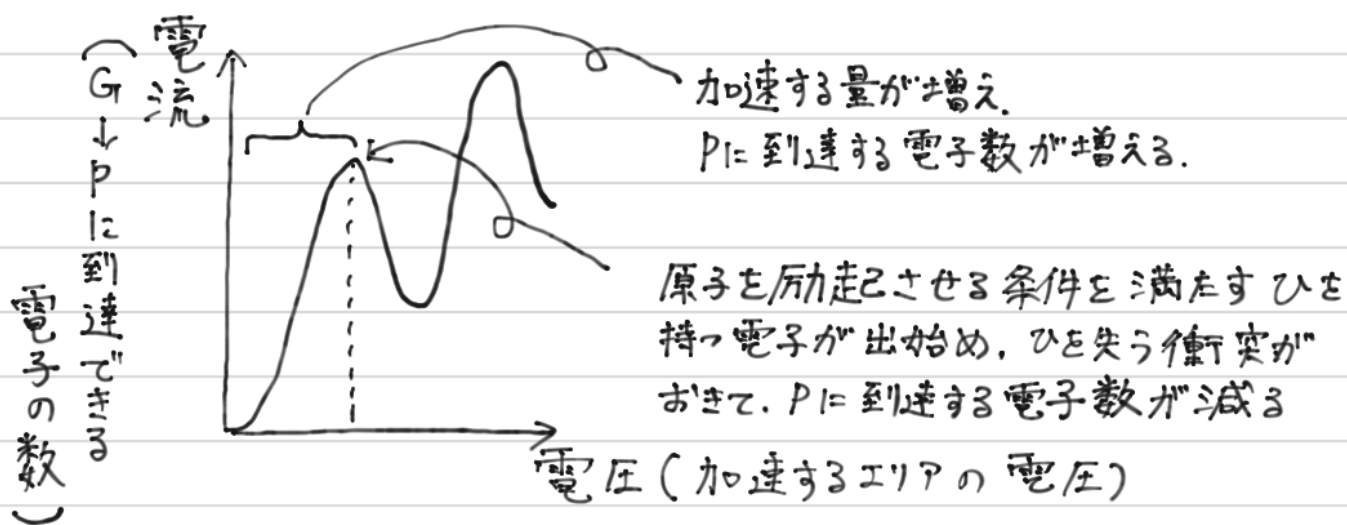 電流
(G→Pに到達できる
電子の数)
加速する量が増え.
Pに到達する電子数が増える.
原子を励起させる条件を満たすひを
持つ電子が出始め. ひを失う衝突が
おきて. Pに到達する電子数が減る
電圧(加速するエリアの電圧)